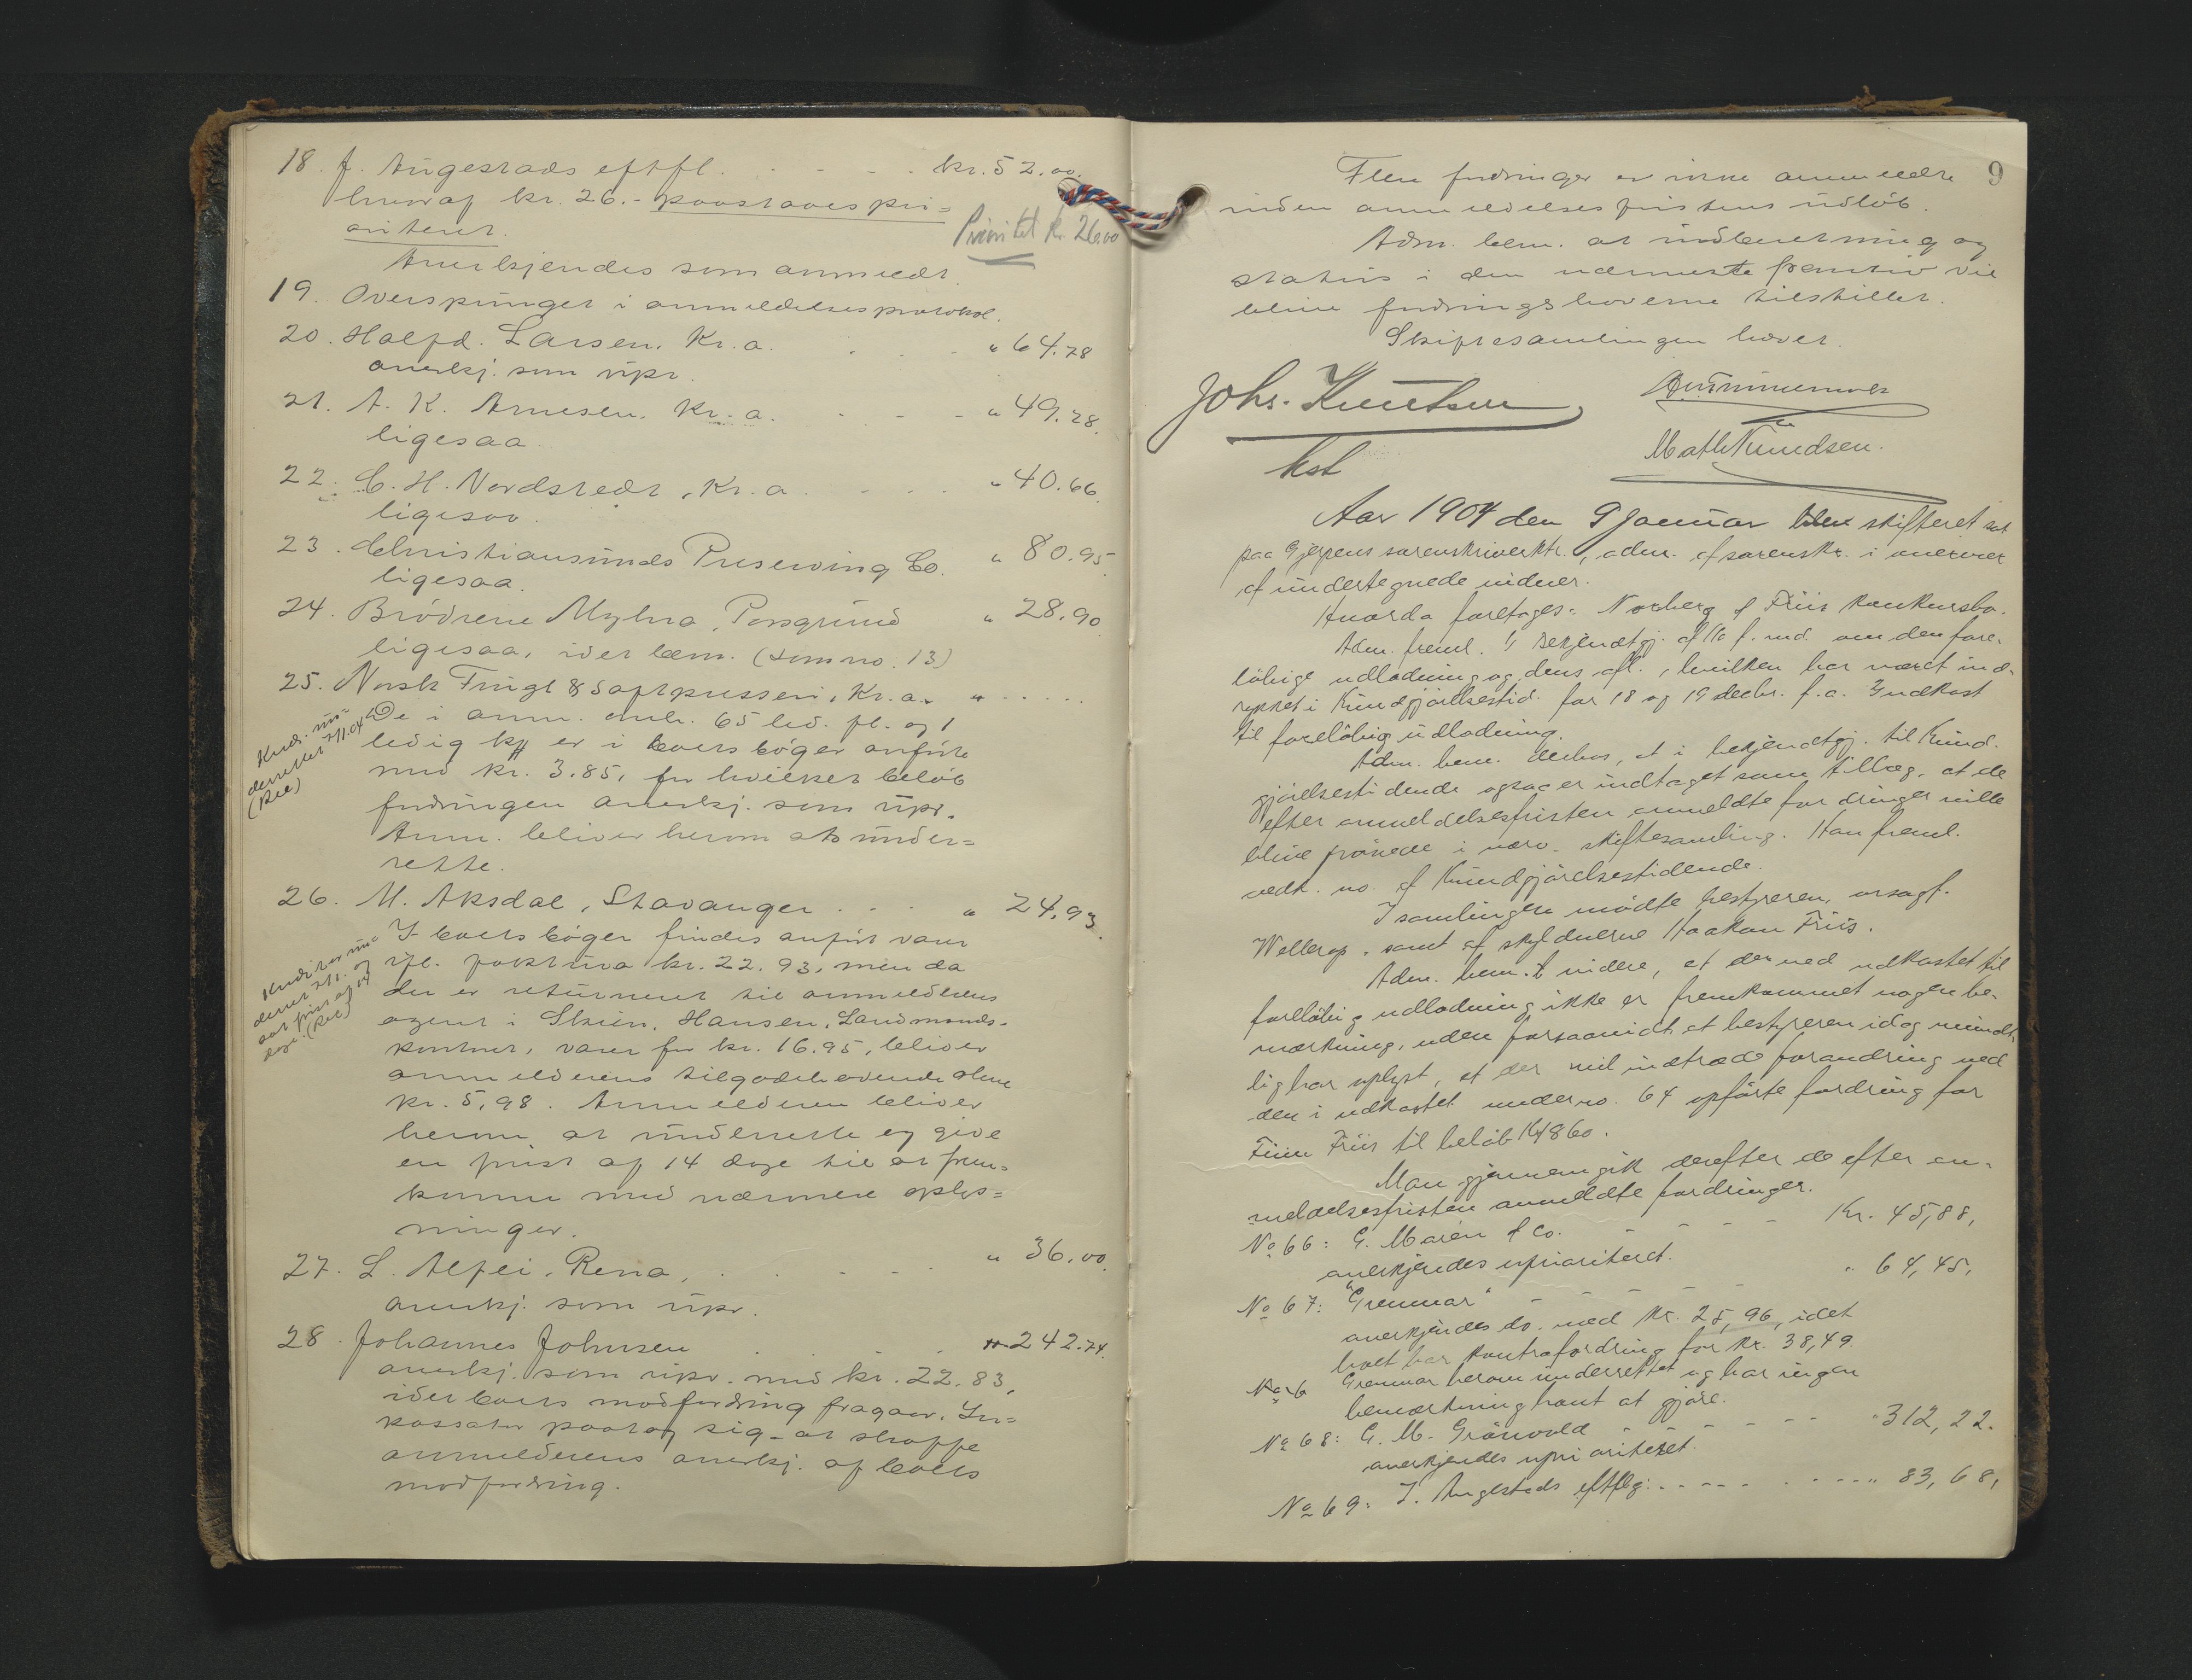 18. J. Augestads eftfl. . . . . kr. 52.00.
hvoraf kr. 26.- paastaaes pri=
oriteret.
Prioritet kr. 26.00
Anerkjendes som anmeldt.
19. Oversprunget i anmeldelsesprotokol.
20. Halfd. Larsen, Kr.a. . . . " 64.78
anerkj. som upr.
21. A. K. Arnesen, Kr.a. . . . " 49.28.
ligesaa
22. C. H. Nordstedt, Kr.a. . . . " 40.66
ligesaa.
23. Christiansunds Preserving Co. " 80.95
ligesaa.
24. Brödrene Myhra, Porsgrund " 28.90
ligesaa, idet bem. (som no. 13)
25. Norsk Frugt & Saftpresseri, Kr.a. " . . . .
De i anm. omh. 65 led. fl. og 1
ledig k. er i boets böger anförte
med kr. 3.85, for hvilket belöb
fordringen anerkj. som upr.
Anm. bliver herom at under=
rette.
Kred. un=
derrettet 7/1.04
(Rec)
26. M. Aksdal, Stavanger . . . " 24.93
I boets böger findes anfört varer
ifl. faktura kr. 22.93, men da
der er returneret til anmelderens
agent i Skien, Hansen, Landmands-
kontoret, varer for kr. 16.95, bliver
anmelderens tilgodehavende alene
kr. 5,98. Anmelderen bliver
herom at underrette og give
en frist af 14 dage til at frem=
komme med nærmere oplys=
ninger.
Kreditor un=
derret. 7/1. og
sat frist af 14
dage. (Rec)
27. L. Alfei, Rena, . . . . " 36.00.
anerkj. som upr.
28. Johannes Johnsen . . . " 242.74.
anerkj. som upr. med kr. 22.83,
idet boets modfordring fragaar. In=
kassator paatog sig at skaffe
anmelderens anerkj. af boets
modfordring.
9
Flere fordringer er ikke anmeldte
inden anmeldelsesfristens udlöb.
Adm. bem. at indberetning og
status i den nærmeste fremtid vil
blive fordringshaverne tilstillet.
Skiftesamlingen hævet.
Johs. Knutsen
kst
Math Knudsen.
Aar 1904 den 9 januar blev skifteret sat
paa Gjerpens sorenskriverktr., adm. af sorenskr. i overvær
af undertegnede vidner.
Hvorda foretoges: Norberg & Friis konkursbo.
Adm. freml. 1/ bekjendtgj. af 16 f. md. om den fore-
löbige udlodning og dens afl., hvilken har været ind-
rykket i Kundgjörelsestid. for 18 og 19 decbr. f.a. Indkast
til forelöbig udlodning.
Adm. bem. derhos, at i bekjendtgj. til Kund-
gjörelsestidende ogsaa er indtaget som tillæg, at de
efter anmeldelsesfristen anmeldte fordringer ville
blive prövede i nærv. skiftesamling. Han freml.
vedk. no. af Kundgjörelsestidende.
I samlingen mödte bestyreren, orsagf.
Wellerop, samt af skyldnerne Haakon Friis.
Adm. bem. videre, at der ved udkastet til
forelöbig udlodning ikke er fremkommet nogen be-
mærkning, uden forsaavidt, at bestyreren idag mundt-
lig har oplyst, at der vil indtræde forandring ved
den i udkastet under no. 64 opförte fordring for
Finn Friis til belöb 14860.
Man gjennemgik derefter de efter an-
meldelsesfristen anmeldte fordringer.
No 66: G. Marén & Co. - - - - - Kr. 45,88,
anerkjendes uprioriteret.
No 67: "Grenmar" - - - - - " 64,45,
anerkjendes do. med kr. 25,96, idet
boet har kontrafordring for kr. 38,49.
Grenmar herom underrettet og har ingen
bemærkning hant at gjöre.
No 68: G. M. Grönvold - - - - - " 312,22.
anerkjendes uprioriteret.
No 69: J. Augestads eftflg: - - - - . . . - - - " 83,68,